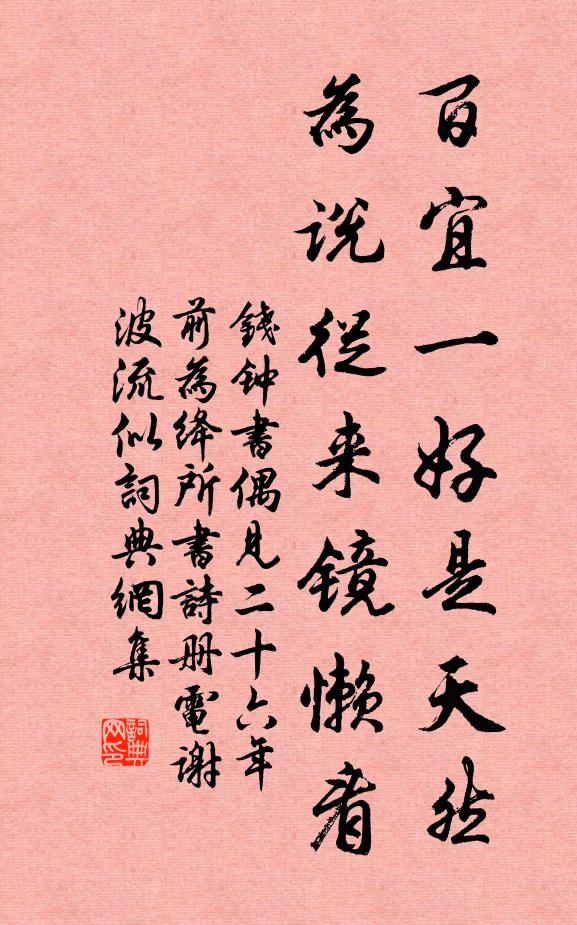 百宜一好是天然
為说從来镜懒看
錢钟書偶見二十六年
前為绛所書詩册電謝
波流似詞典網集
詞典网印